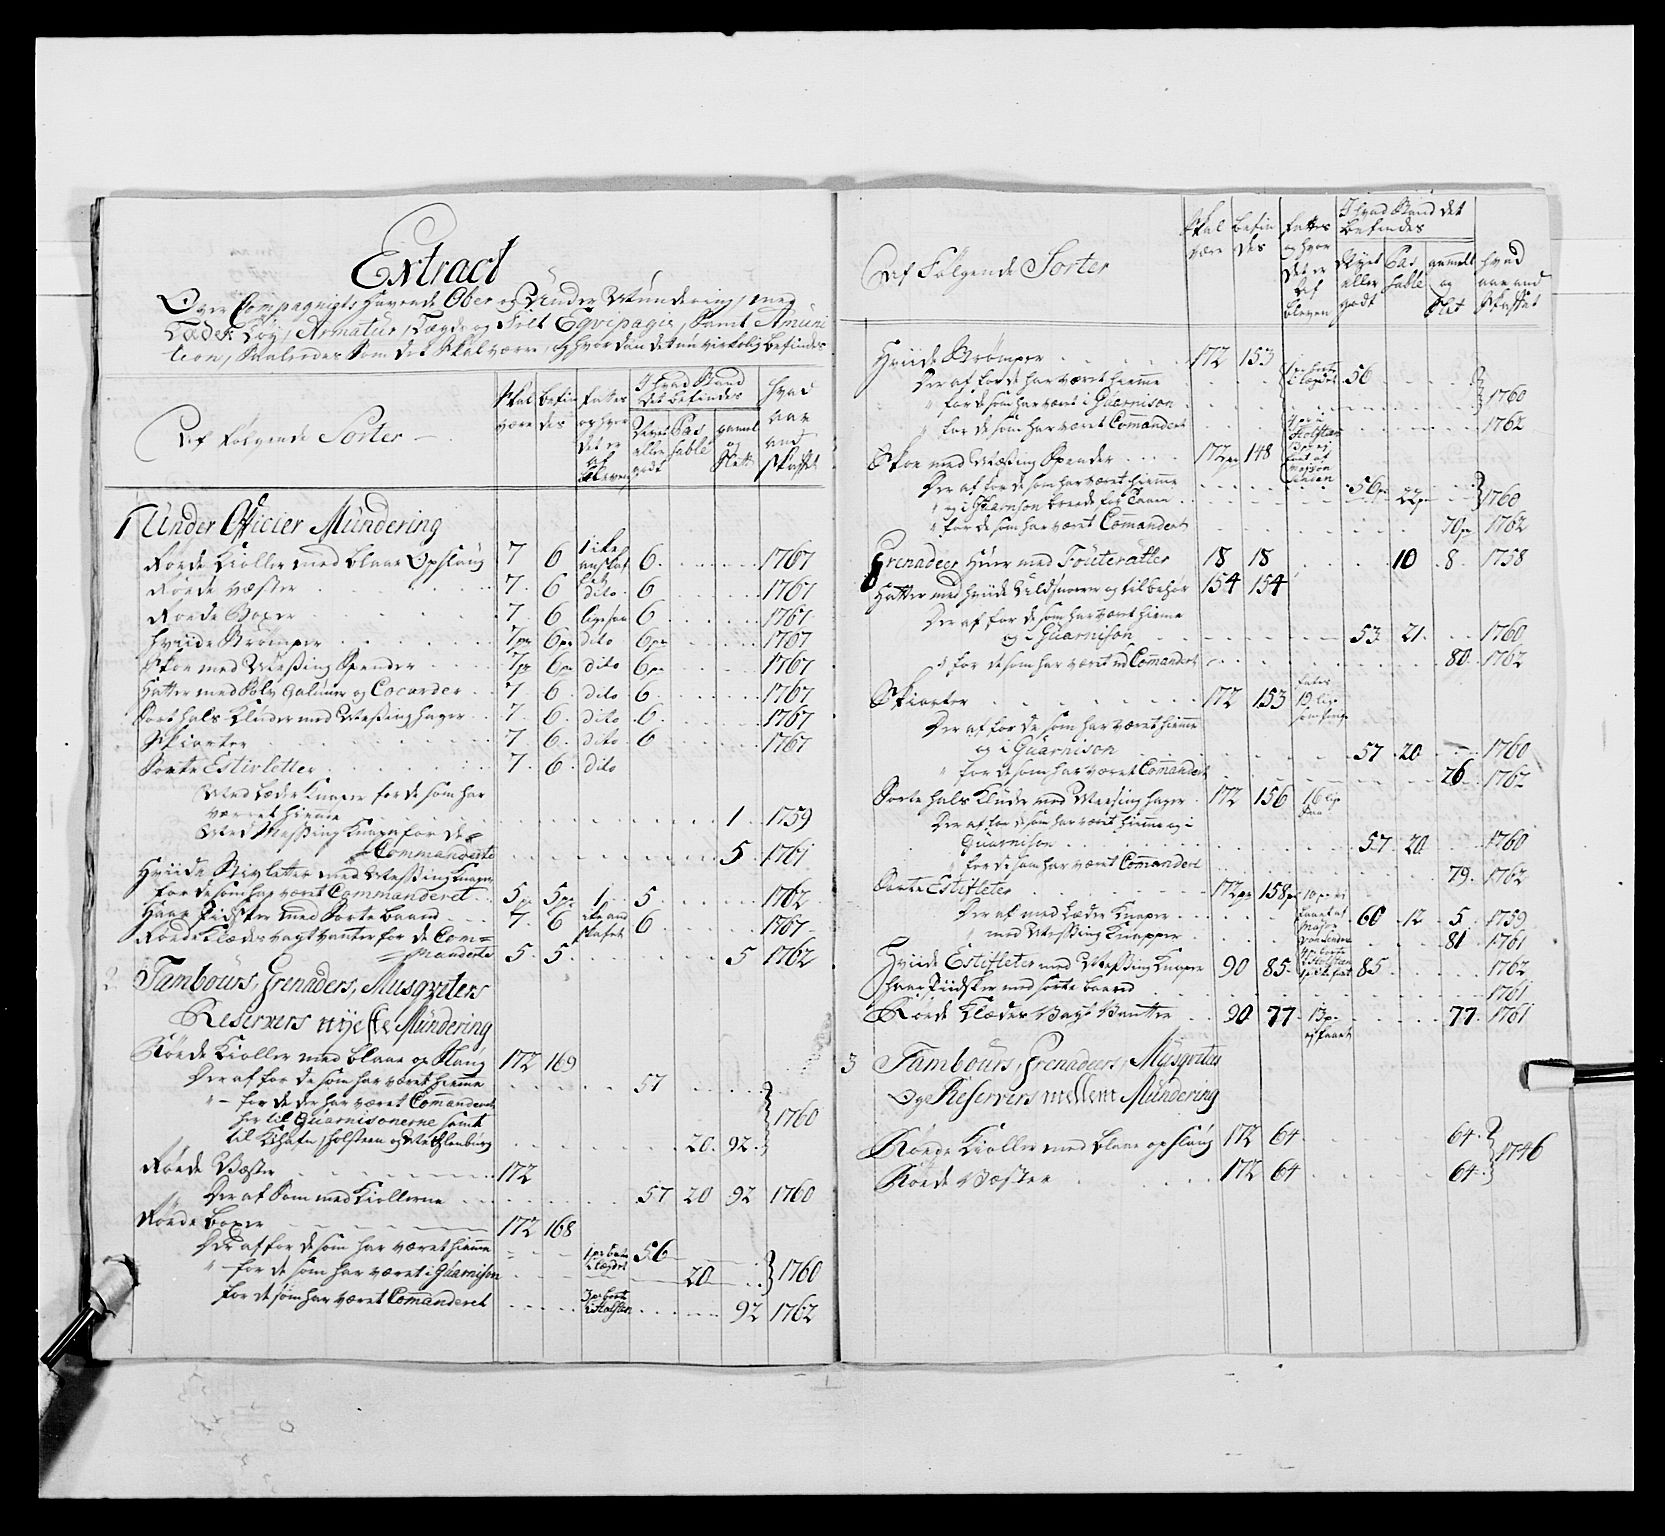 Extract
Over Compagniets havende Ober og Under Mundering, med
Læder Tøy, Armatur, Tægde og Felt Eqvipagie, samt Amuni
tion, saaledes som det skal være, og hvordan det nu virkelig befindes
Af følgende Sorter
skal være
befindes
fattes og hvor det er af bleven
I hvad Stand det befindes
Nyet eller godt
Passable
gammel og slett
hvad aar and skaffet
1 Under Officier Mundering
Røde Kioller med blaae Opslaug 7 6 1 ike anskaf 6 1767
Røde Vester 7 6 dito 6 1767
Røde Boxer 7 6 ligesaa 6 1767
Hviide Strømper 7pr 6pr dito 6pr 1767
Skoe med Messing Spender 7pr 6pr dito 6pr 1767
Hatter med Sølv Galuner og Cocarder 7 6 dito 6 1767
Sort hals Kluder med Messing hager 7 6 dito 6 1767
Skiorter 7 6 dito 6 1767
Sorte Estivletter 7 6 dito
Med Læder Knaper for de som har
været hiemme 1 1759
Med Messing Knaper for de
Commanderte 5 1761
Hviide Stivletter med Messing Knaper
for de som har været Commanderet 5pr 5pr 1 5 1762
Haar Pidsker med Sorte baand 7 6 ike and skafet 6 1767
Røde Klædes vagt vanter for de Com=
manderte 5 5 5 1762
2 Tambours, Grenaders, Musqveters
Reservers nyeste Mundering
Røde Kioller med blaae op Slaug 172 169
Der af for de som har været hiemme 57
" for de der har været Comanderet
her til Guarnisonerne samt
til Kihafn, Holsteen og Mechlenburg 20 92 1760
Røde Vester 172
Der af Som med Kiollerne 57 20 92 1760
Røde boxer 172 168
Der af for de som har været hiemme 1pr 56
" for de som har været i Guarnison 20 1760
for de som har været Comanderet 3pr borte i Holsten 92 1762
Af følgende Sorter
skal være
befindes
fattes og hvor det er af bleven
I hvad Stand det befindes
Nyet eller godt
Passable
gammelt og slet
hvad aar and skaffet
Hviide Strømper 172 153
Der af for de har været hiemme 56
" for de som har været i Guarnison 1760
" for de som har været Comandert 1762
Skoe med Messing Spender 172pr 148
Der af for de som har været hiemme 56pr 22pr
" og i Guarnison 1760
" for de som har været Comandert 70pr 1762
Grenadeer Huer med Fouteraller 18 18 10 8 1758
Hatter med hviide Uldsnorer og tilbehør 154 154
Der af for de som har været hiemme
og i Guarnison 53 21 1760
" for de som har været ud Comandert 80 1762
Skiorter 172 153 fates 19
Der af for de som har været hiemme
og i Guarnison 57 20 1760
" for de som har været Comandert 76 1762
Sorte hals Kluder med Messing hager 172 156 16
Der af for de som har været hiemme og i
Guarnison 57 20 1760
" for de som har været Comandert 79 1762
Sorte Estifleter 172pr 158pr
Der af med Læder Knaper 60 12 5 1759
" med Messing Knapper 81 1761
Hviide Estifleter med Messing Knaper 90 85 85 1762
Haar Piidsker med sorte baand 1761
Røde Klædes Vagt Vanter 90 77 13pr 77 1761
3 Tambours, Grenadeers, Musqveters
Og Reservers mellem Mundering
Røde Kioller med blaae opslaug 172 64 64
Røde Vester 172 64 64 1746